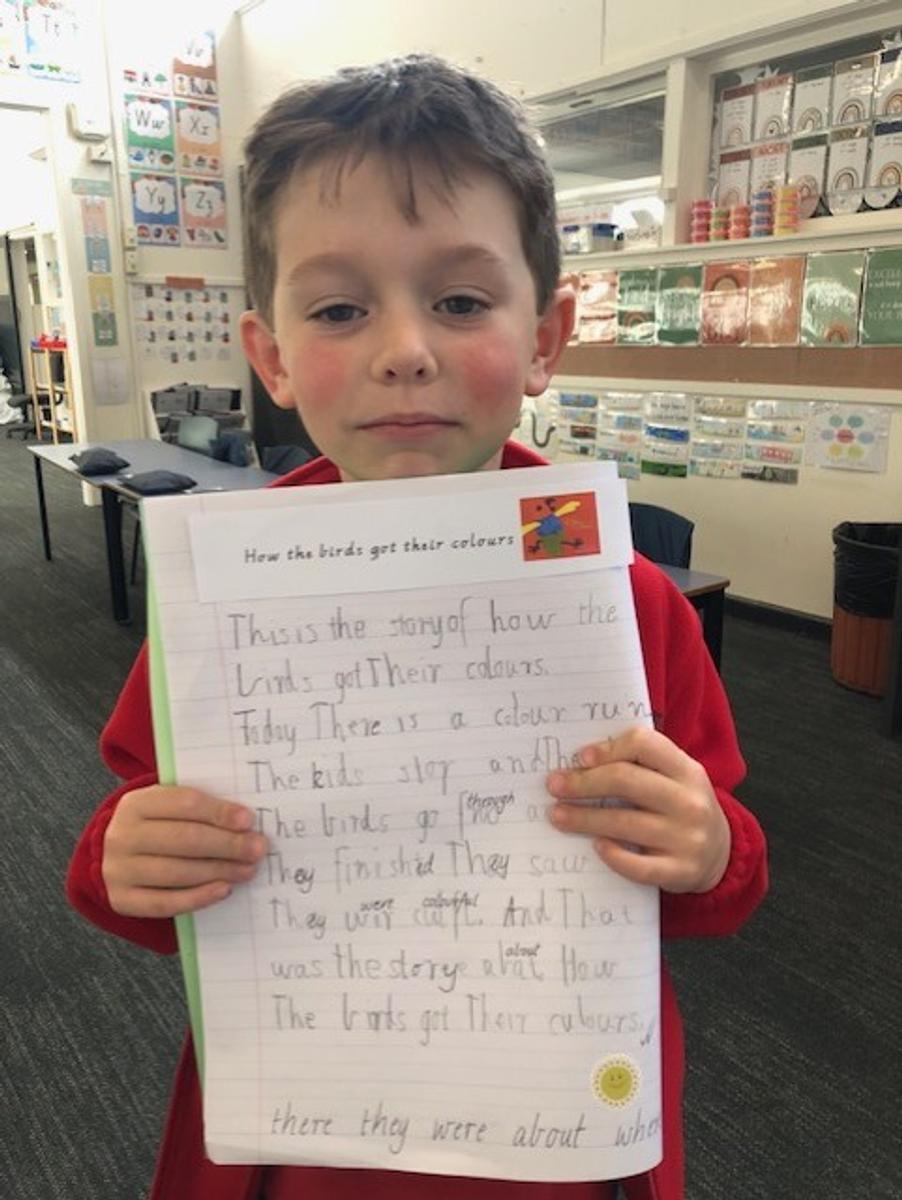 Tt
Vv
Ww Xx
Yy Zz
How the birds got their colours
This is the story of how the
birds got Their colours.
Today There is a colour run
The kids stop and The
through
The birds go
They finishid They saw
were colourful
They wir And That
about
was the storye abat How
The birds got Their culours.
there they were about when